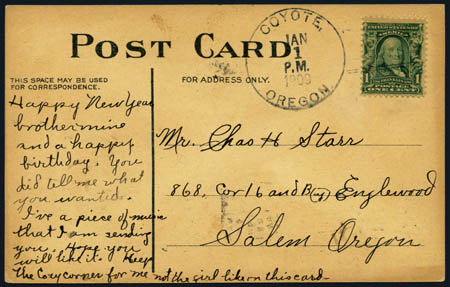 POST CARD
COYOTE,
JAN
1
P.M.
OREGON
1
POSTAGE
ONE CENT
THIS SPACE MAY BE USED
FOR CORRESPONDENCE.
FOR ADDRESS ONLY.
Happy New Year
brother mine
and a happy
birthday. You
did tell me what
you wanted.
I've a piece of music
that I am sending
you. Hope you
will like it. Keep
the Cozy corner for me not the girl like on this card.
Mr. Chas H Starr
868, Cor 16 and B Englewood
Salem Oregon